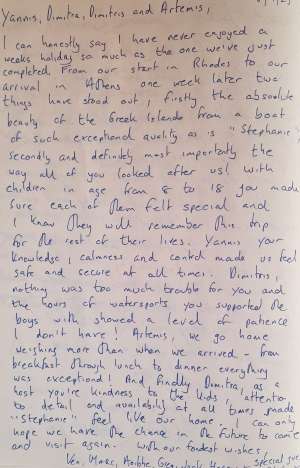 Yannis, Dimitra, Dimitris and Artemis,
I can honestly say I have never enjoyed a
weeks holiday so much as the one we've just
completed. From our start in Rhodes to our
arrival in Athens one week later two
things have stood out, firstly the absolute
beauty of the Greek Islands from a boat
of such exceptional quality as is "Stephanie",
secondly and definitely most importantly the
way all of you looked after us! With
children in age from 8 to 18 you made
sure each of them felt special and
I know they will remember this trip
for the rest of their lives. Yannis your
knowledge, calmness and control made us feel
safe and secure at all times. Dimitris,
nothing was too much trouble for you and
the hours of watersports you supported the
boys with showed a level of patience
I don't have! Artemis, we go home
weighing more than when we arrived - from
breakfast through lunch to dinner everything
was exceptional! And finally Dimitra, as a
host you're kindness to the kids, attention
to detail and availability at all times made
"Stephanie" feel like our home. I can only
hope we have the chance in the future to come
and visit again. With our fondest wishes,
Marc,